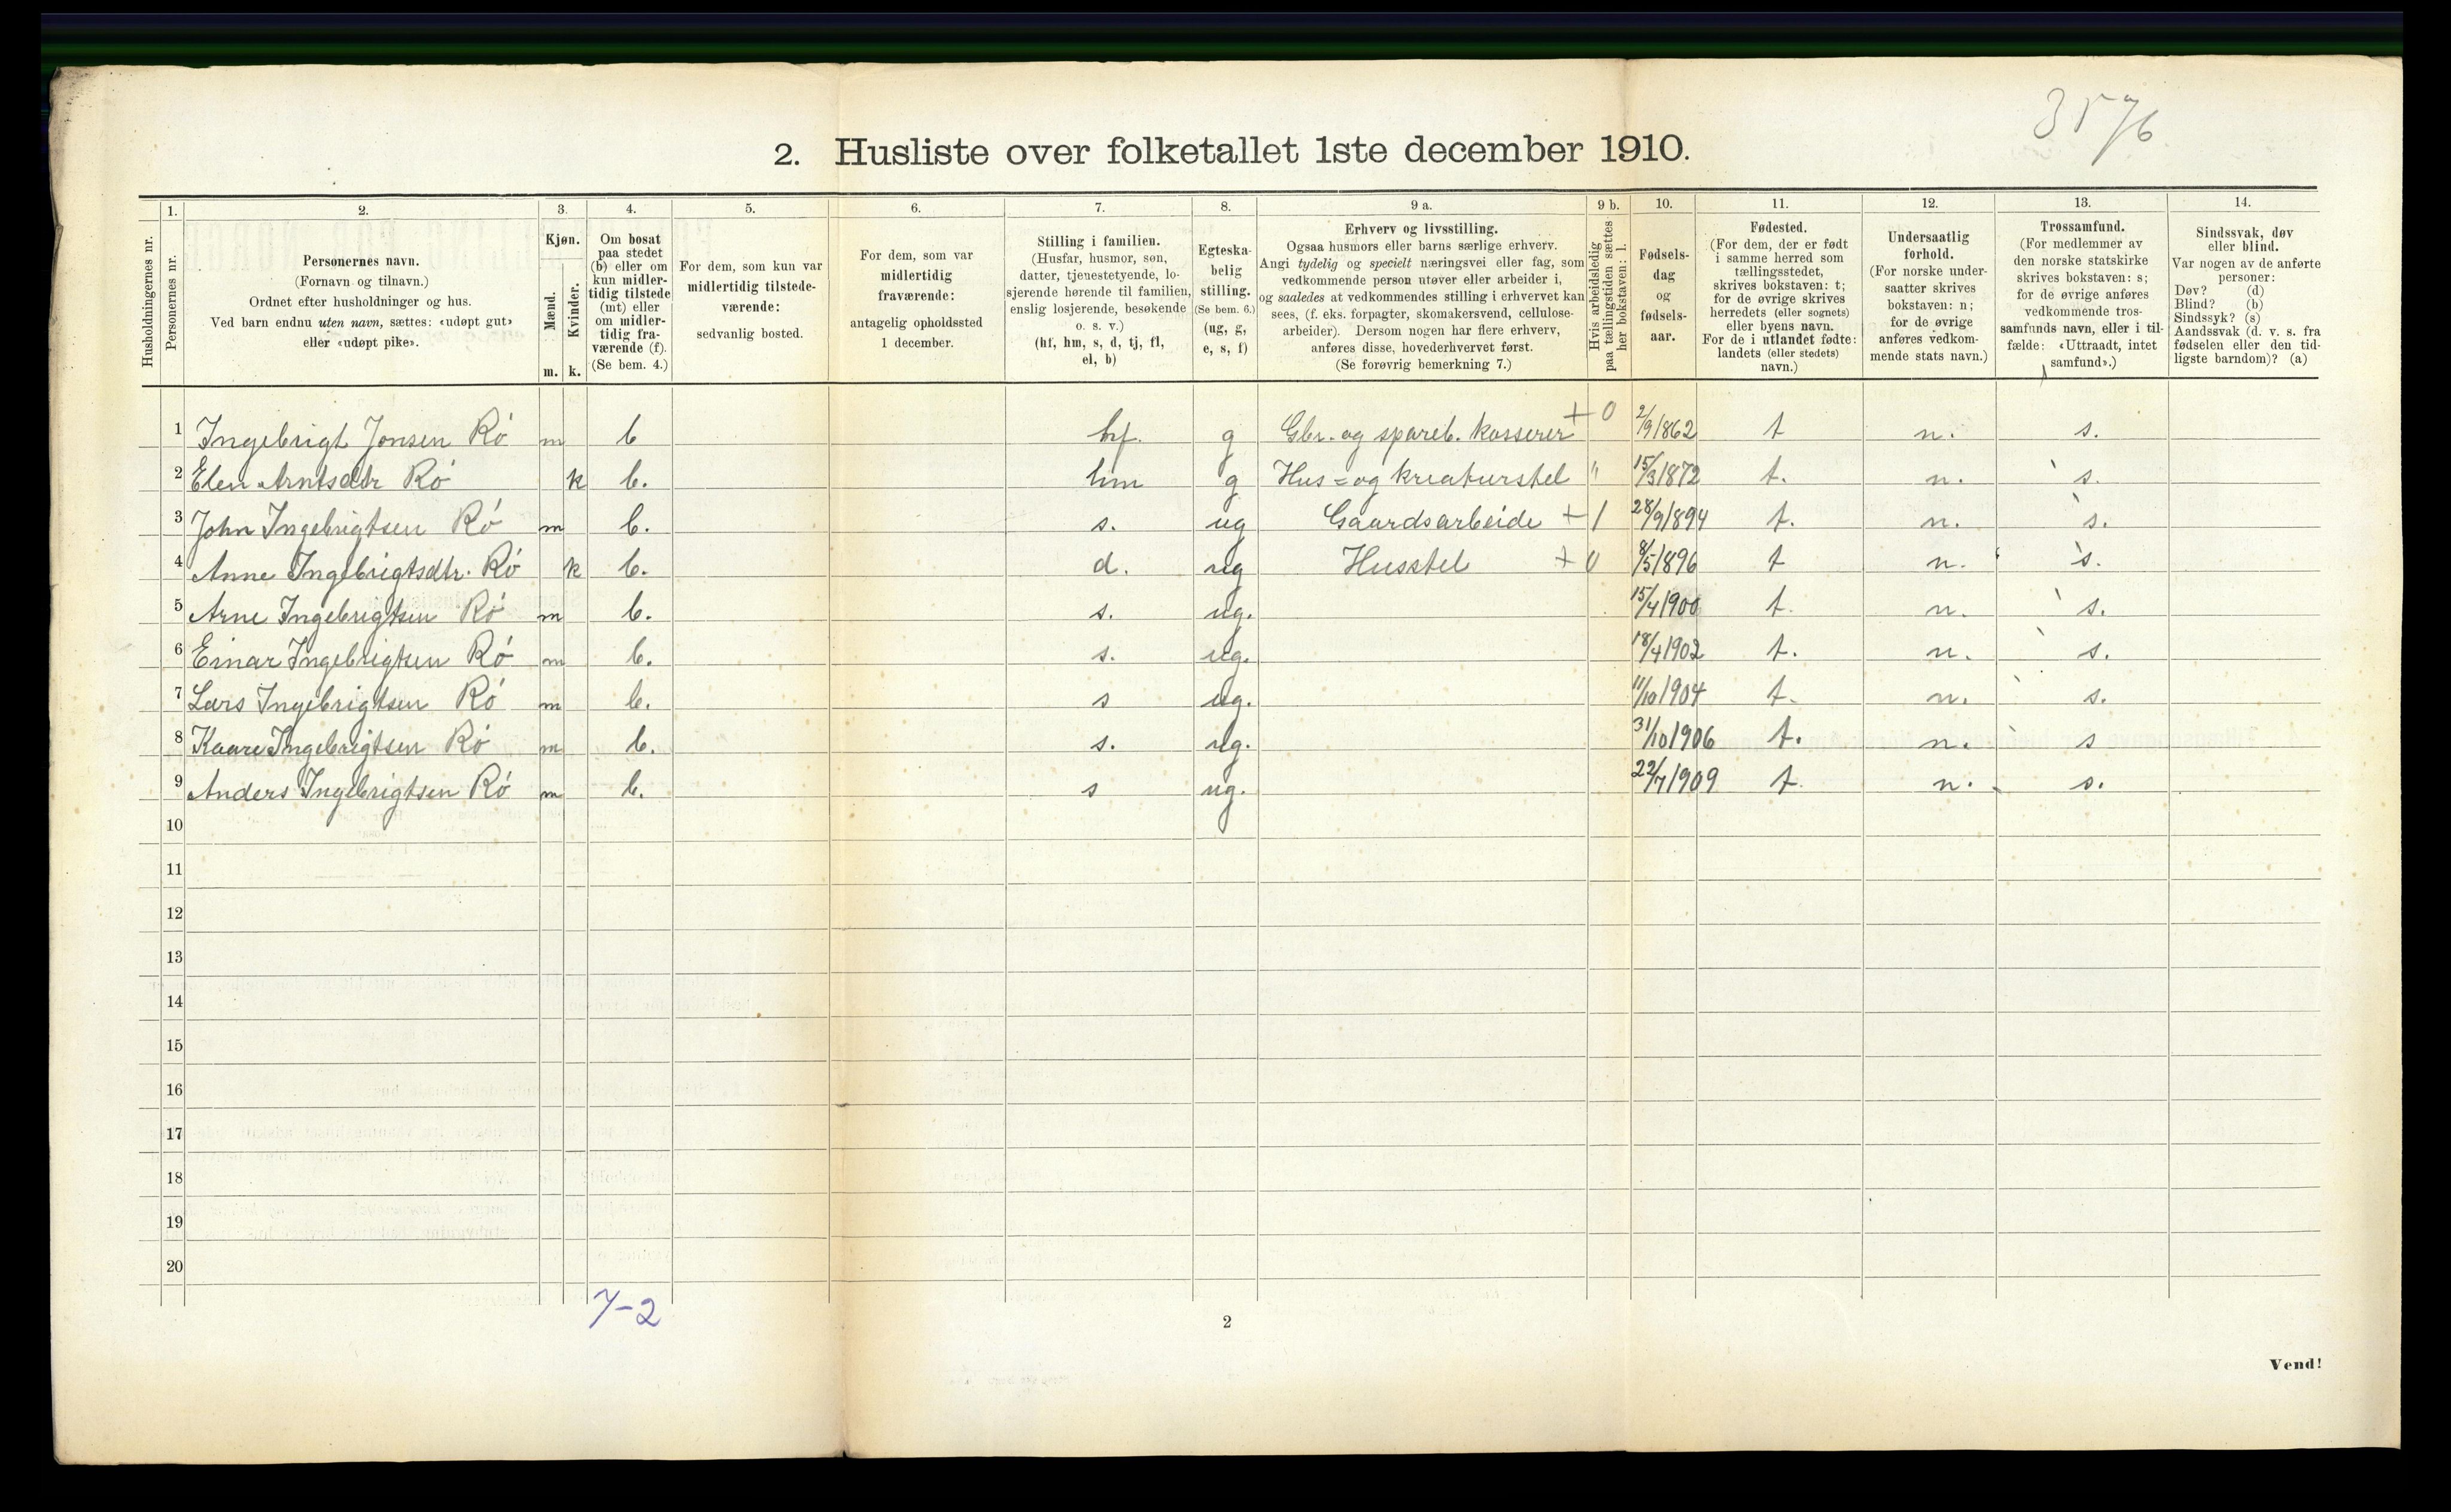 3576
2. Husliste over folketallet 1ste december 1910.
Husholdningernes nr.
1. Personernes nr.
2. Personernes navn.
(Fornavn og tilnavn.)
Ordnet efter husholdninger og hus.
Ved barn endnu uten navn, sættes: «udøpt gut»
eller «udøpt pike».
3. Kjøn.
Mænd. m.
Kvinder. k.
4. Om bosat
paa stedet
(b) eller om
kun midler-
tidig tilstede
(mt) eller
om midler-
tidig fra-
værende (f).
(Se bem. 4.)
5. For dem, som kun var
midlertidig tilstede-
værende:
sedvanlig bosted.
6. For dem, som var
midlertidig
fraværende:
antagelig opholdssted
1 december.
7. Stilling i familien.
(Husfar, husmor, søn,
datter, tjenestetyende, lo-
sjerende hørende til familien,
enslig losjerende, besøkende
o. s. v.)
(hf, hm, s, d, tj, fl,
el, b)
8. Egteska-
belig
stilling.
(Se bem. 6.)
(ug, g,
e, s, f)
9 a. Erhverv og livsstilling.
Ogsaa husmors eller barns særlige erhverv.
Angi tydelig og specielt næringsvei eller fag, som
vedkommende person utøver eller arbeider i,
og saaledes at vedkommendes stilling i erhvervet kan
sees, (f. eks. forpagter, skomakersvend, cellulose-
arbeider). Dersom nogen har flere erhverv,
anføres disse, hovederhvervet først.
(Se forøvrig bemerkning 7.)
9 b. Hvis arbeidsledig
paa tællingstiden sættes
her bokstaven: l.
10. Fødsels-
dag
og
fødsels-
aar.
11. Fødested.
(For dem, der er født
i samme herred som
tællingsstedet,
skrives bokstaven: t;
for de øvrige skrives
herredets (eller sognets)
eller byens navn.
For de i utlandet fødte:
landets (eller stedets)
navn.)
12. Undersaatlig
forhold.
(For norske under-
saatter skrives
bokstaven: n;
for de øvrige
anføres vedkom-
mende stats navn.)
13. Trossamfund.
(For medlemmer av
den norske statskirke
skrives bokstaven: s;
for de øvrige anføres
vedkommende tros-
samfunds navn, eller i til-
fælde: «Uttraadt, intet
samfund».)
14. Sindssvak, døv
eller blind.
Var nogen av de anførte
personer:
Døv? (d)
Blind? (b)
Sindssyk? (s)
Aandssvak (d. v. s. fra
fødselen eller den tid-
ligste barndom)? (a)
1 Ingebrigt Jonsen Rö m b hf. g Gbr. og spareb. kasserer + 0 2/9 1862 t n. s.
2 Elen Arntsdtr Rö k b. hm g Hus= og kreaturstel " 15/3 1872 t. n. s.
3 John Ingebrigtsen Rö m b. s. ug Gaardsarbeide + 1 28/9 1894 t. n. s.
4 Anne Ingebrigtsdtr. Rö k b. d. ug Husstel + 0 8/5 1896 t n. s.
5 Arne Ingebrigtsen Rö m b. s. ug. 15/4 1900 t. n. s.
6 Einar Ingebrigtsen Rö m b. s. ug. 18/4 1902 t. n. s.
7 Lars Ingebrigtsen Rö m b. s ug. 11/10 1904 t. n. s.
8 Kaare Ingebrigtsen Rö m b. s. ug. 31/10 1906 t. n. s
9 Anders Ingebrigtsen Rö m b. s ug. 22/7 1909 t. n. s.
10
11
12
13
14
15
16
17
18
19
20
7-2
2
Vend!